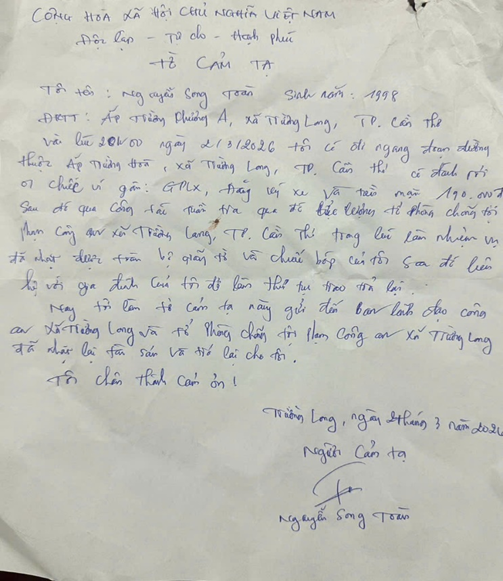 CỘNG HÒA XÃ HỘI CHỦ NGHĨA VIỆT NAM
Độc lập - Tự do - Hạnh phúc
TỜ CẢM TẠ
Tôi tên: Nguyễn Song Toàn Sinh năm: 1998
ĐKTT: Ấp Trường Phường A, xã Trường Long, TP. Cần Thơ
vào lúc 20h00 ngày 2/3/2026 tôi có đi ngang đoạn đường
thuộc Ấp Trường Hoà, xã Trường Long, TP. Cần Thơ có đánh rơi
01 chiếc ví gồm: GPLX, Đăng ký xe và tiền mặt 190.000đ
Sau đó qua công tác tuần tra qua đó lực lượng tổ phòng chống tội
phạm công an xã Trường Long, TP. Cần Thơ trong lúc làm nhiệm vụ
đã nhặt được toàn bộ giấy tờ và chiếc bóp của tôi sau đó liên
hệ với gia đình của tôi để làm thủ tục trao trả lại.
Nay tôi làm tờ cảm tạ này gửi đến Ban lãnh đạo công
an xã Trường Long và tổ Phòng chống tội phạm công an xã Trường Long
đã nhặt lại tài sản và trả lại cho tôi.
Tôi chân thành cảm ơn!
Trường Long, ngày 2 tháng 3 năm 2026
Người cảm tạ
Nguyễn Song Toàn